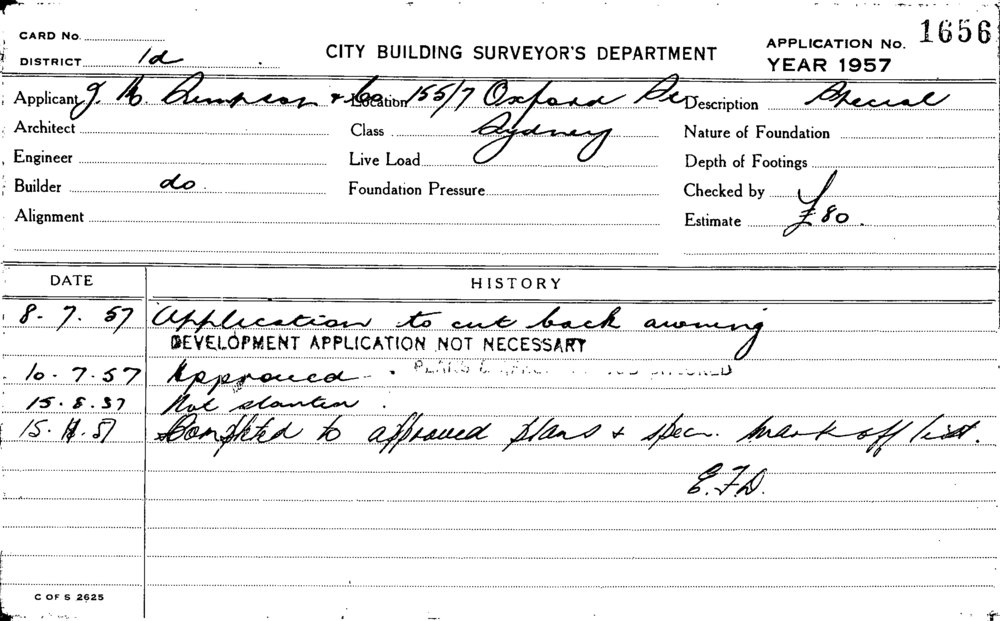 CARD No.
1656
DISTRICT 1d
CITY BUILDING SURVEYOR'S DEPARTMENT
APPLICATION No.
YEAR 1957
Applicant J. & Co. Location 155/7 Oxford St Description Special
Architect Class Sydney Nature of Foundation
Engineer Live Load Depth of Footings
Builder do. Foundation Pressure Checked by
Alignment Estimate £80.
DATE HISTORY
8. 7. 57 Application to cut back awning
DEVELOPMENT APPLICATION NOT NECESSARY
10. 7. 57 Approved.
15. 8. 57 Not started.
15. 11. 57 Completed to approved plans & specn. Mark off list.
E.F.D.
C OF S 2625